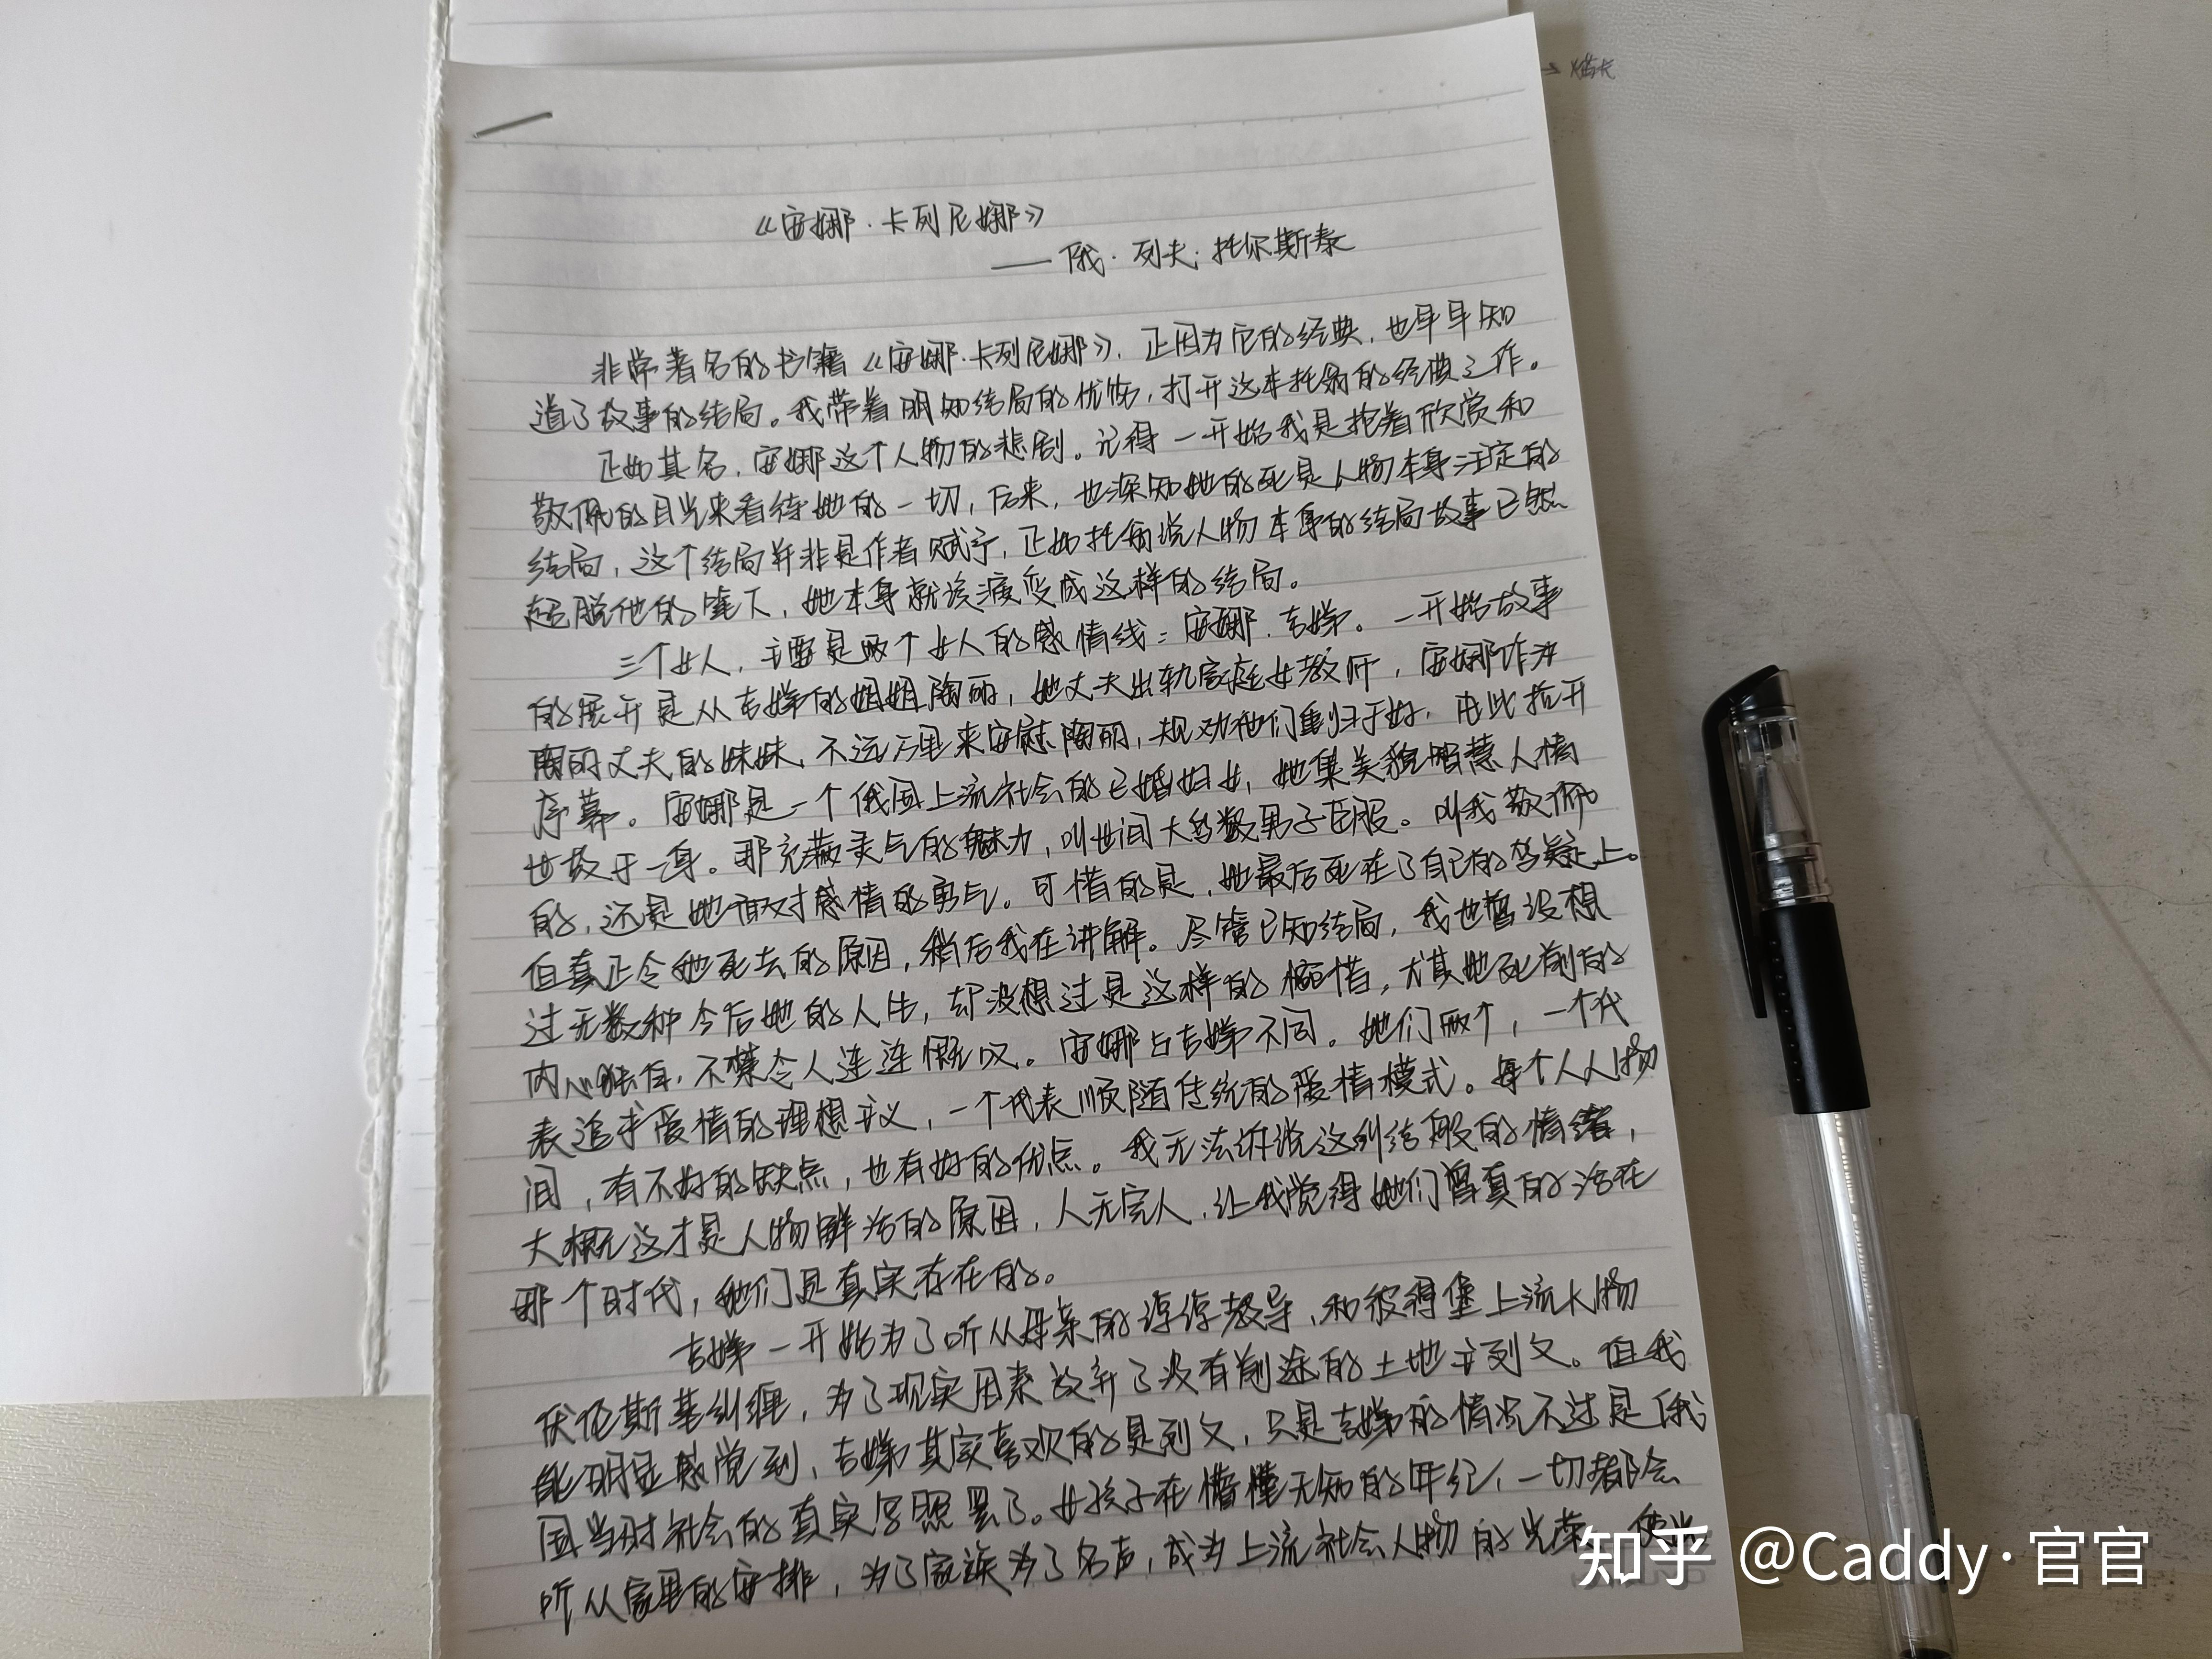 《安娜·卡列尼娜》
——俄·列夫·托尔斯泰
非常著名的书籍《安娜·卡列尼娜》，正因为它的经典，也早早知
道了故事的结局。我带着明知结局的忧伤，打开这本托翁的经典之作。
正如其名，安娜这个人物的悲剧。记得一开始我是抱着欣赏和
敬佩的目光来看待她的一切，后来，也深知她的死是人物本身注定的
结局，这个结局并非是作者赋予，正如托翁说人物本身的结局故事已然
超脱他的笔下，她本身就该演变成这样的结局。
三个女人，主要是两个女人的感情线：安娜·吉娣。一开始故事
的展开是从吉娣的姐姐陶丽，她丈夫出轨家庭女教师，安娜作为
陶丽丈夫的妹妹，不远万里来安慰陶丽，规劝他们重归于好，由此拉开
序幕。安娜是一个俄国上流社会的已婚妇女，她集美貌智慧人情
世故于一身。那充满灵气的魅力，叫世间大多数男子臣服。叫我敬佩
的，还是她面对感情的勇气。可惜的是，她最后死在了自己的答疑上。
但真正令她死去的原因，稍后我在讲解。尽管已知结局，我也曾设想
过无数种今后她的人生，却没想过是这样的惋惜，尤其她死前的
内心独白，不禁令人连连慨叹。安娜与吉娣不同。她们两个，一个代
表追求爱情的理想主义，一个代表顺随传统的爱情模式。每个人人物
间，有不好的缺点，也有好的优点。我无法诉说这纠结般的情绪，
大概这才是人物鲜活的原因，人无完人，让我觉得她们曾真的活在
那个时代，她们是真实存在的。
吉娣一开始为了听从母亲的谆谆教导，和彼得堡上流人物
伏伦斯基纠缠，为了现实因素放弃了没有前途的土地主列文。但我
能明显感觉到，吉娣其实喜欢的是列文，只是吉娣的情况不过是俄
国当时社会的真实写照罢了。女孩子在懵懂无知的年纪，一切都会
听从家里的安排，为了家族为了名声，成为上流社会人物的光荣
知乎 @Caddy·官官